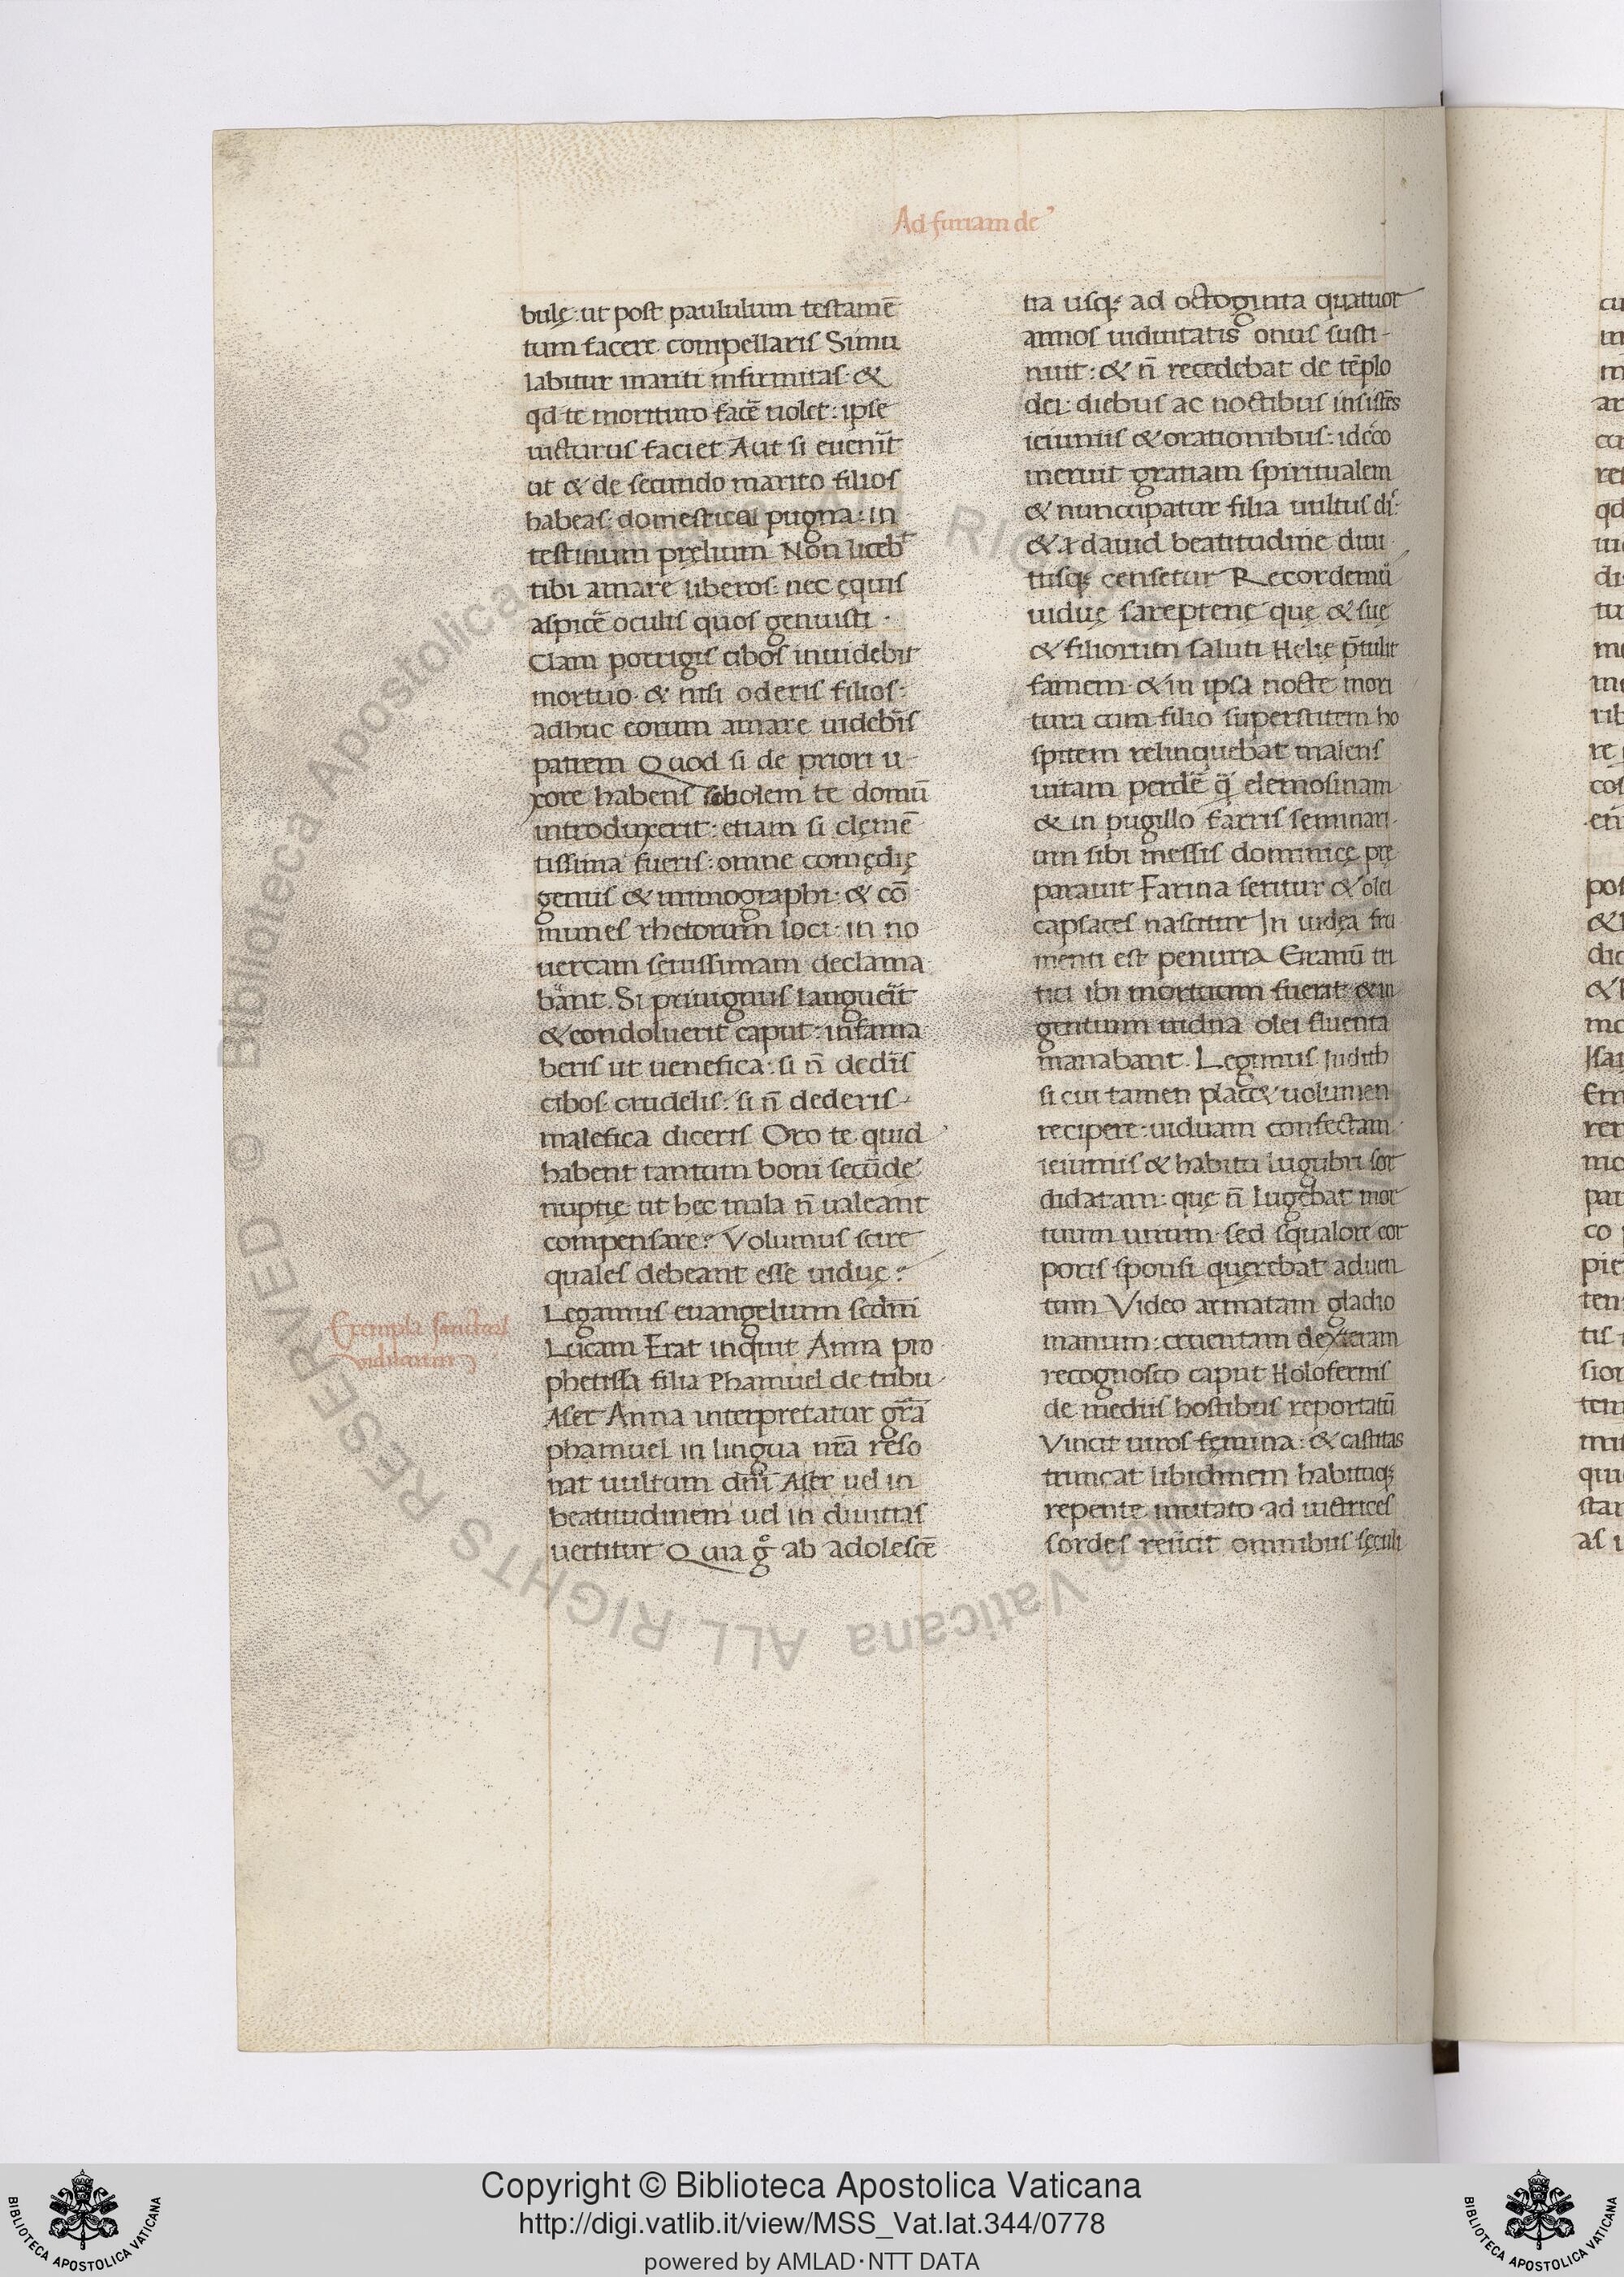 Ad furiam de
bulę. ut post paululum testamē
tum facere compellaris Simu
labitur mariti infirmitas. &
qd te morituro facē uolet: ipse
uicturus faciet Aut si euenīt
ut & de secundo marito filios
habeas: domestica pugna: in
testinum prelium Non liceb̄t
tibi amare liberos: nec ęquis
aspicē oculis quos genuisti.
Clam porrigis cibos inuidebit
mortuo. & nisi oderis filios:
adhuc eorum amare uidebīs
patrem Quod si de priori u
xore habens sobolem te domū
introduxerit: etiam si clęmē
tissima fueris: omne comędię
genus & mimographi. & cō
munes rhetorum loci. in no
uercam sęuissimam declama
bānt. Si priuignus langueīt
& condoluerit caput: infama
beris ut uenefica: si n̄ dedīs
cibos crudelis: si n̄ dederis
malefica diceris Oro te quid
habent tantum boni secūdę
nuptię ut hec mala n̄ ualeant
compensare? Volumus scire
quales debeant esse uiduę?
Legamus euangelium scdm̄
Lucam Erat inquit Anna pro
phetissa filia Phamuel de tribu
Aser Anna interpretatur grā
phamuel in lingua nrā reso
nat uultum dnī Aser uel in
beatitudinem uel in diuitias
uertitur Quia g̊ ab adolescē
Exempla sanctarum
viduarum
tia usq; ad octoginta quatuor
annos uiduitatis onus susti
nuit: & n̄ recedebat de tēplo
dei: diebus ac noctibus insistēs
ieiuniis & orationibus: idcīco
meruit gratiam spiritualem
& nuncupatur filia uultus di:
& a dauid beatitudine diui
tiisq; censetur Recordemur
uiduę sareptenę quę & suę
& filiorum saluti Helię p̄tulit
famem. & in ipsa nocte mori
tura cum filio superstitem ho
spitem relinquebat malens
uitam perdē q̄ elemosinam
& in pugillo farris seminari
um sibi messis dominicę prę
parauit Farina seritur & olei
capsaces nascitur In iudęa fru
menti est penuria Granū tri
tici ibi mortuum fuerat & in
gentium uidua olei fluenta
manabant. Legimus Iudith
si cui tamen plac& uolumen
recipere: uiduam confectam
ieiuniis & habitu lugubri sor
didatam: quę n̄ lugebat mor
tuum uirum. sed squalore cor
poris sponsi querebat aduen
tum Video armatam gladio
manum: cruentam dexteram
recognosco caput Holofernis
de mediis hostibus reportatū
Vincit uiros femina: & castitas
truncat libidinem habituq;
repente mutato ad uictrices
sordes redit omnibus sęculi
Copyright © Biblioteca Apostolica Vaticana
http://digi.vatlib.it/view/MSS_Vat.lat.344/0778
powered by AMLAD·NTT DATA